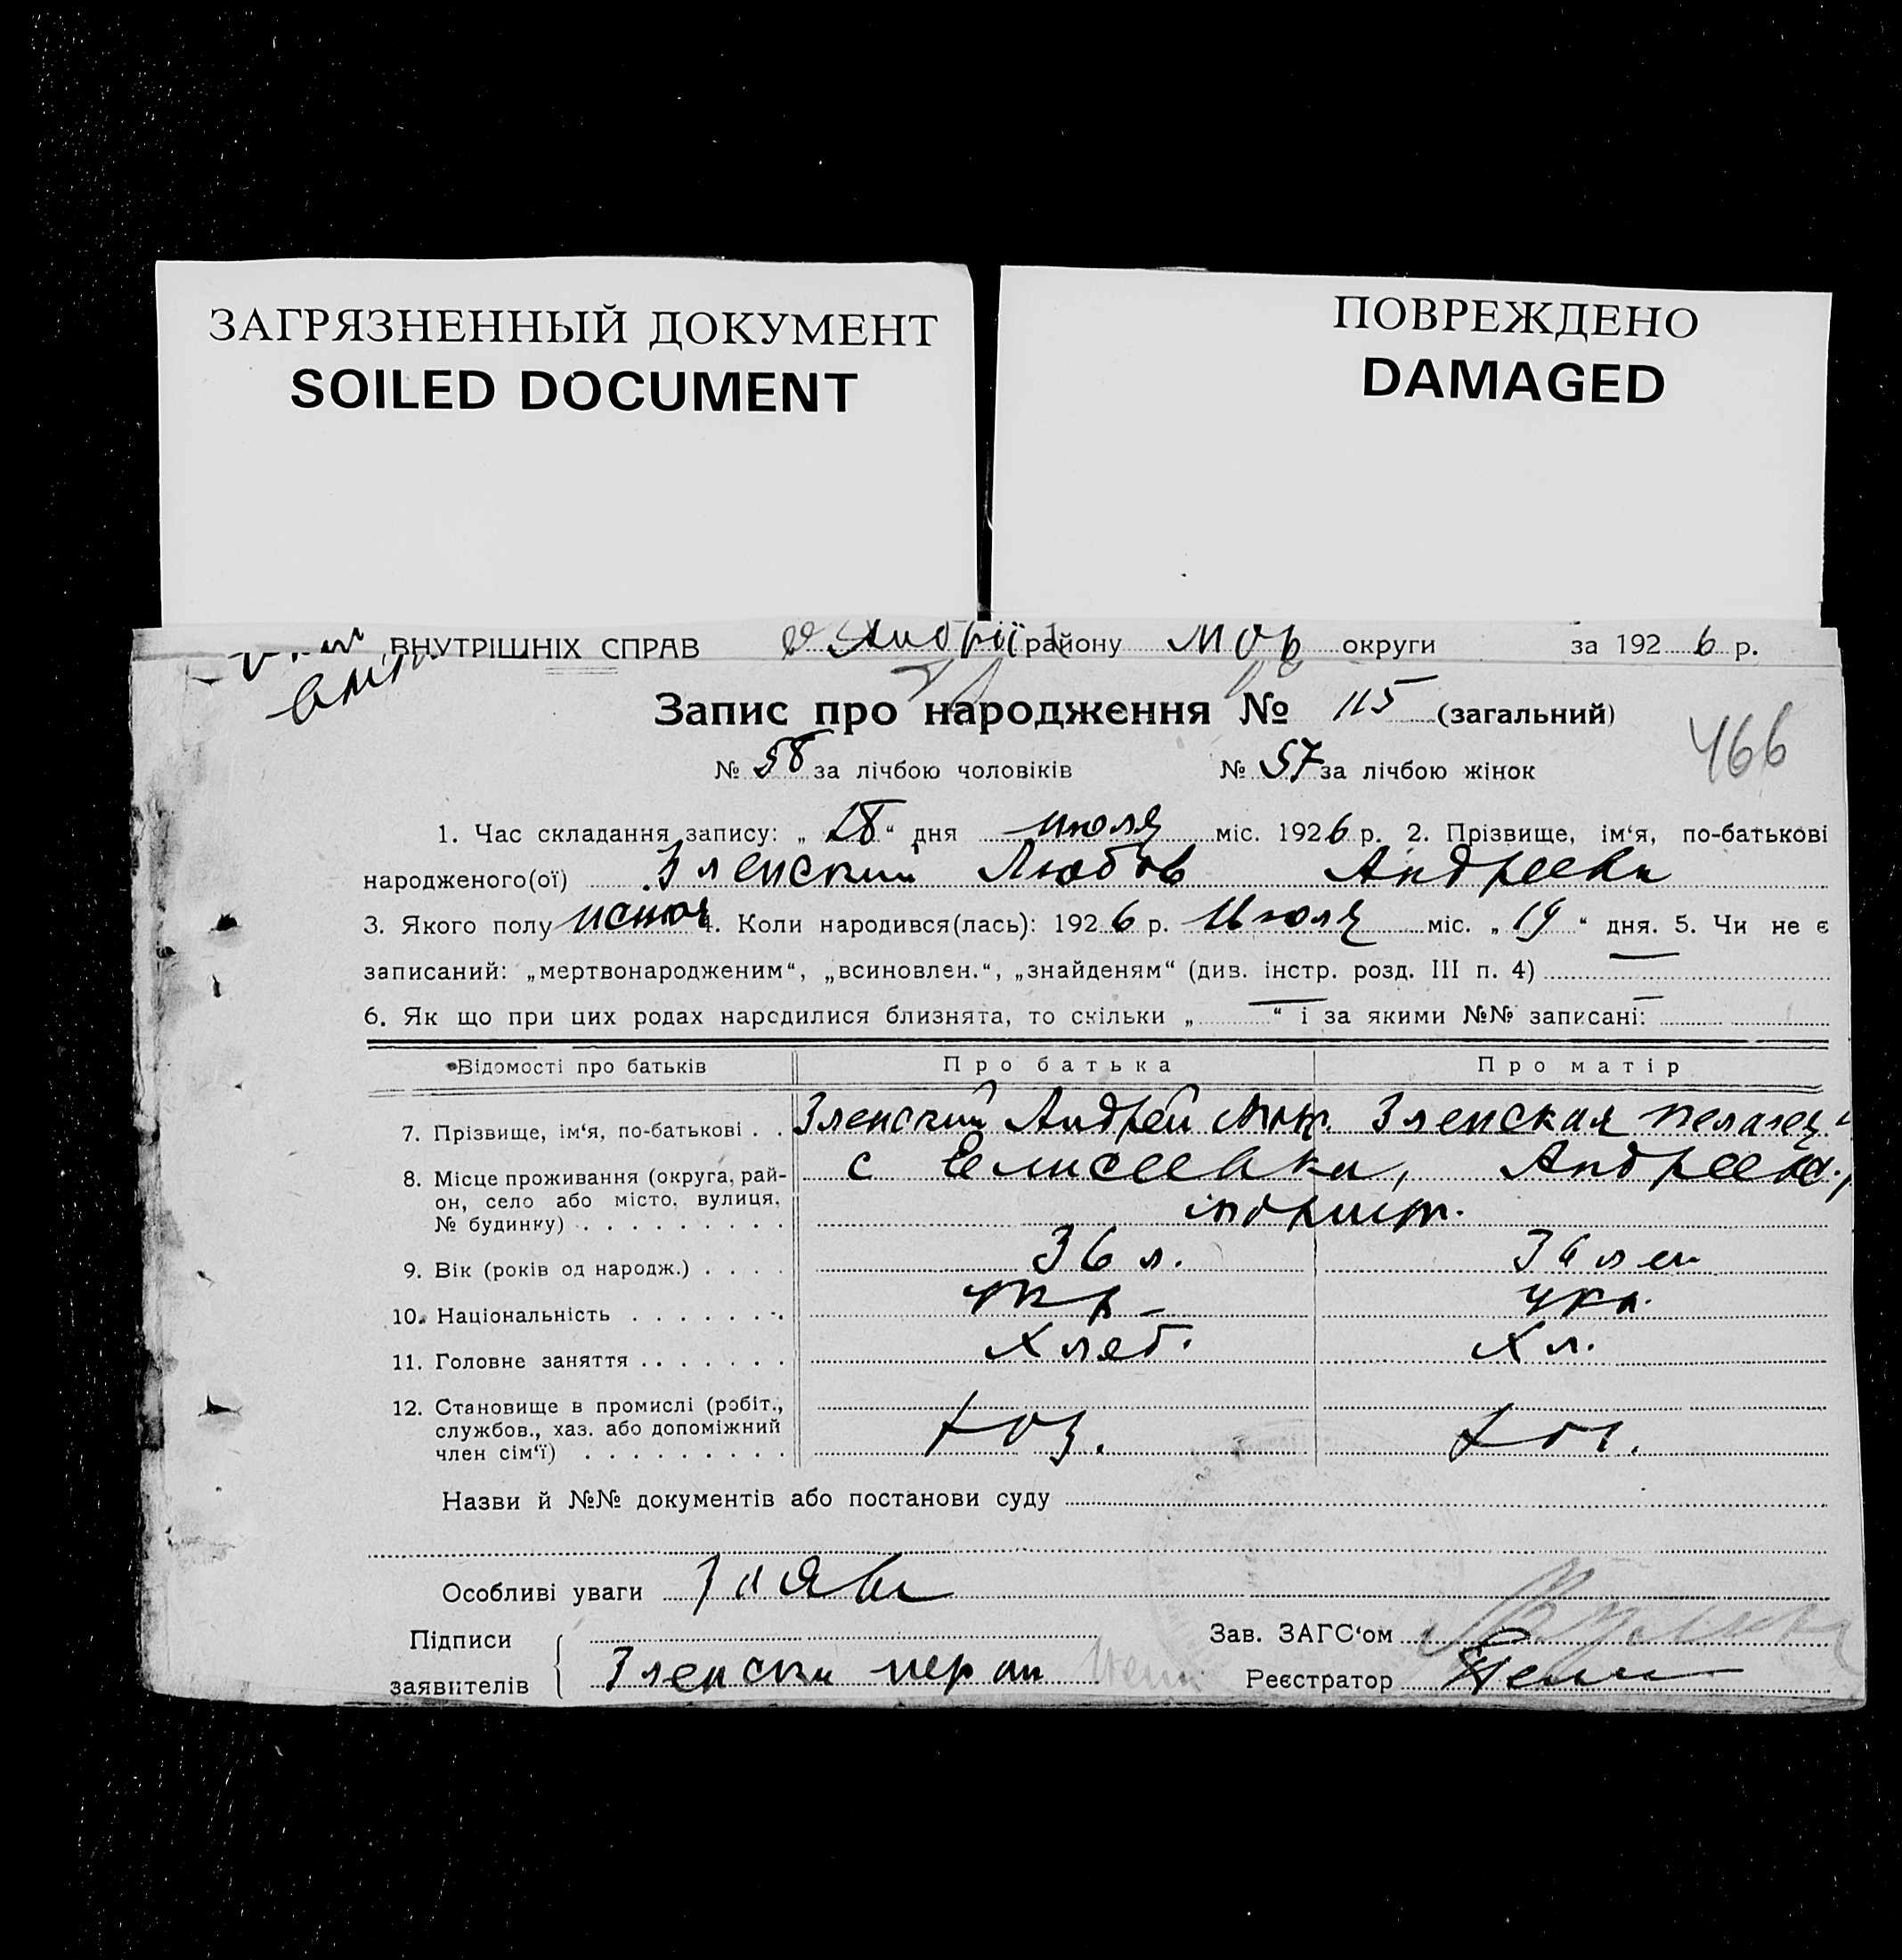 ЗАГРЯЗНЕННЫЙ ДОКУМЕНТ
SOILED DOCUMENT
ПОВРЕЖДЕНО
DAMAGED
ВНУТРІШНІХ СПРАВ району округи за 1926 р.
Запис про народження № 115 (загальний)
466
№ 58 за лічбою чоловіків № 57 за лічбою жінок
1. Час складання запису: „ 28 “ дня июля міс. 1926 р. 2. Прізвище, ім‘я, по-батькові
народженого(ої) Зленский Любов Андреевн
3. Якого полу 4. Коли народився(лась): 1926 р. Июля міс. „ 19 “ дня. 5. Чи не є
записаний: „мертвонародженим“, „всиновлен.“, „знайденям“ (див. інстр. розд. III п. 4) —
6. Як що при цих родах народилися близнята, то скільки „ — “ і за якими №№ записані: —
Відомості про батьків Про батька Про матір
7. Прізвище, ім‘я, по-батькові . . Зленский Андрей Зленская Пелагея
8. Місце проживання (округа, рай-
он, село або місто, вулиця,
№ будинку) . . . . . . . . . с Елисеевка, Андреев.,
9. Вік (років од народж.) . . . . 36 л. 36 лет
10. Національність . . . . . . . укр укр.
11. Головне заняття . . . . . . . Хлеб. Хл.
12. Становище в промислі (робіт.,
службов., хаз. або допоміжний
член сім‘ї) . . . . . . . . . хоз. хоз.
Назви й №№ документів або постанови суду
Особливі уваги Заяви
Підписи
заявителів Зленски
Зав. ЗАГС‘ом
Реєстратор